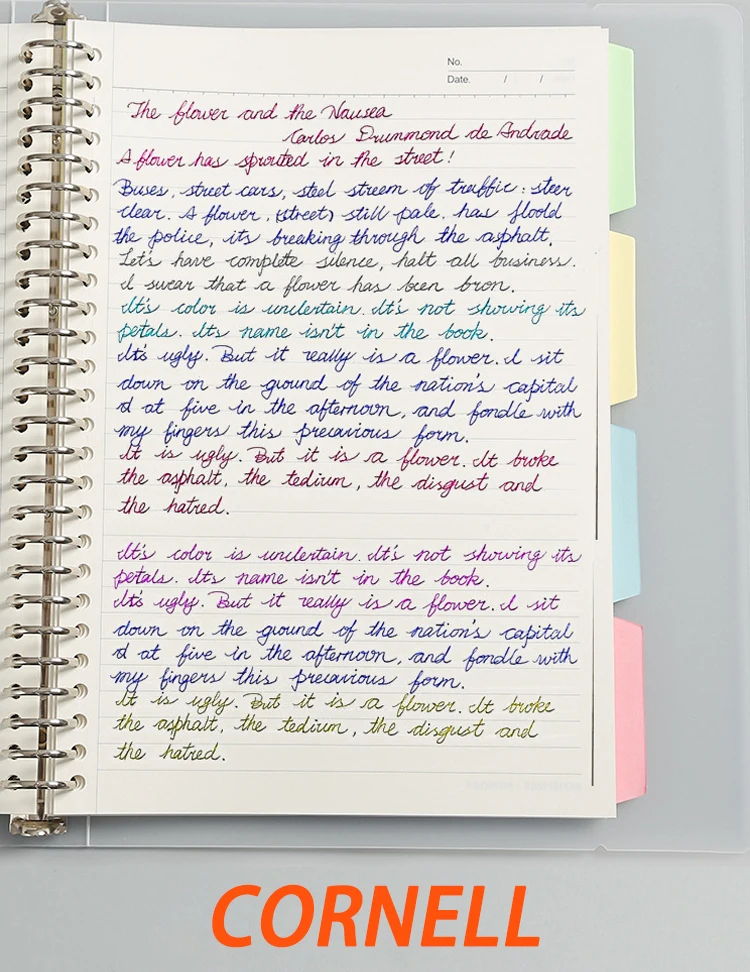 No.
Date. / /
The flower and the Nausea
Carlos Drummond de Andrade
A flower has sprouted in the street!
Buses, street cars, steel streem of traffic: steer
clear. A flower, (street) still pale. has floold
the police, it's breaking through the asphalt.
Let's have complete silence, halt all business.
I swear that a flower has been bron.
It's color is undertain. It's not showing its
petals. Its name isn't in the book.
It's ugly. But it really is a flower. I sit
down on the ground of the nation's capital
at five in the afternoon, and fondle with
my fingers this precavious form.
It is ugly. But it is a flower. It broke
the asphalt, the tedium, the disgust and
the hatred.
It's color is undertain. It's not showing its
petals. Its name isn't in the book.
It's ugly. But it really is a flower. I sit
down on the ground of the nation's capital
at five in the afternoon, and fondle with
my fingers this precavious form.
It is ugly. But it is a flower. It broke
the asphalt, the tedium, the disgust and
the hatred.
CORNELL